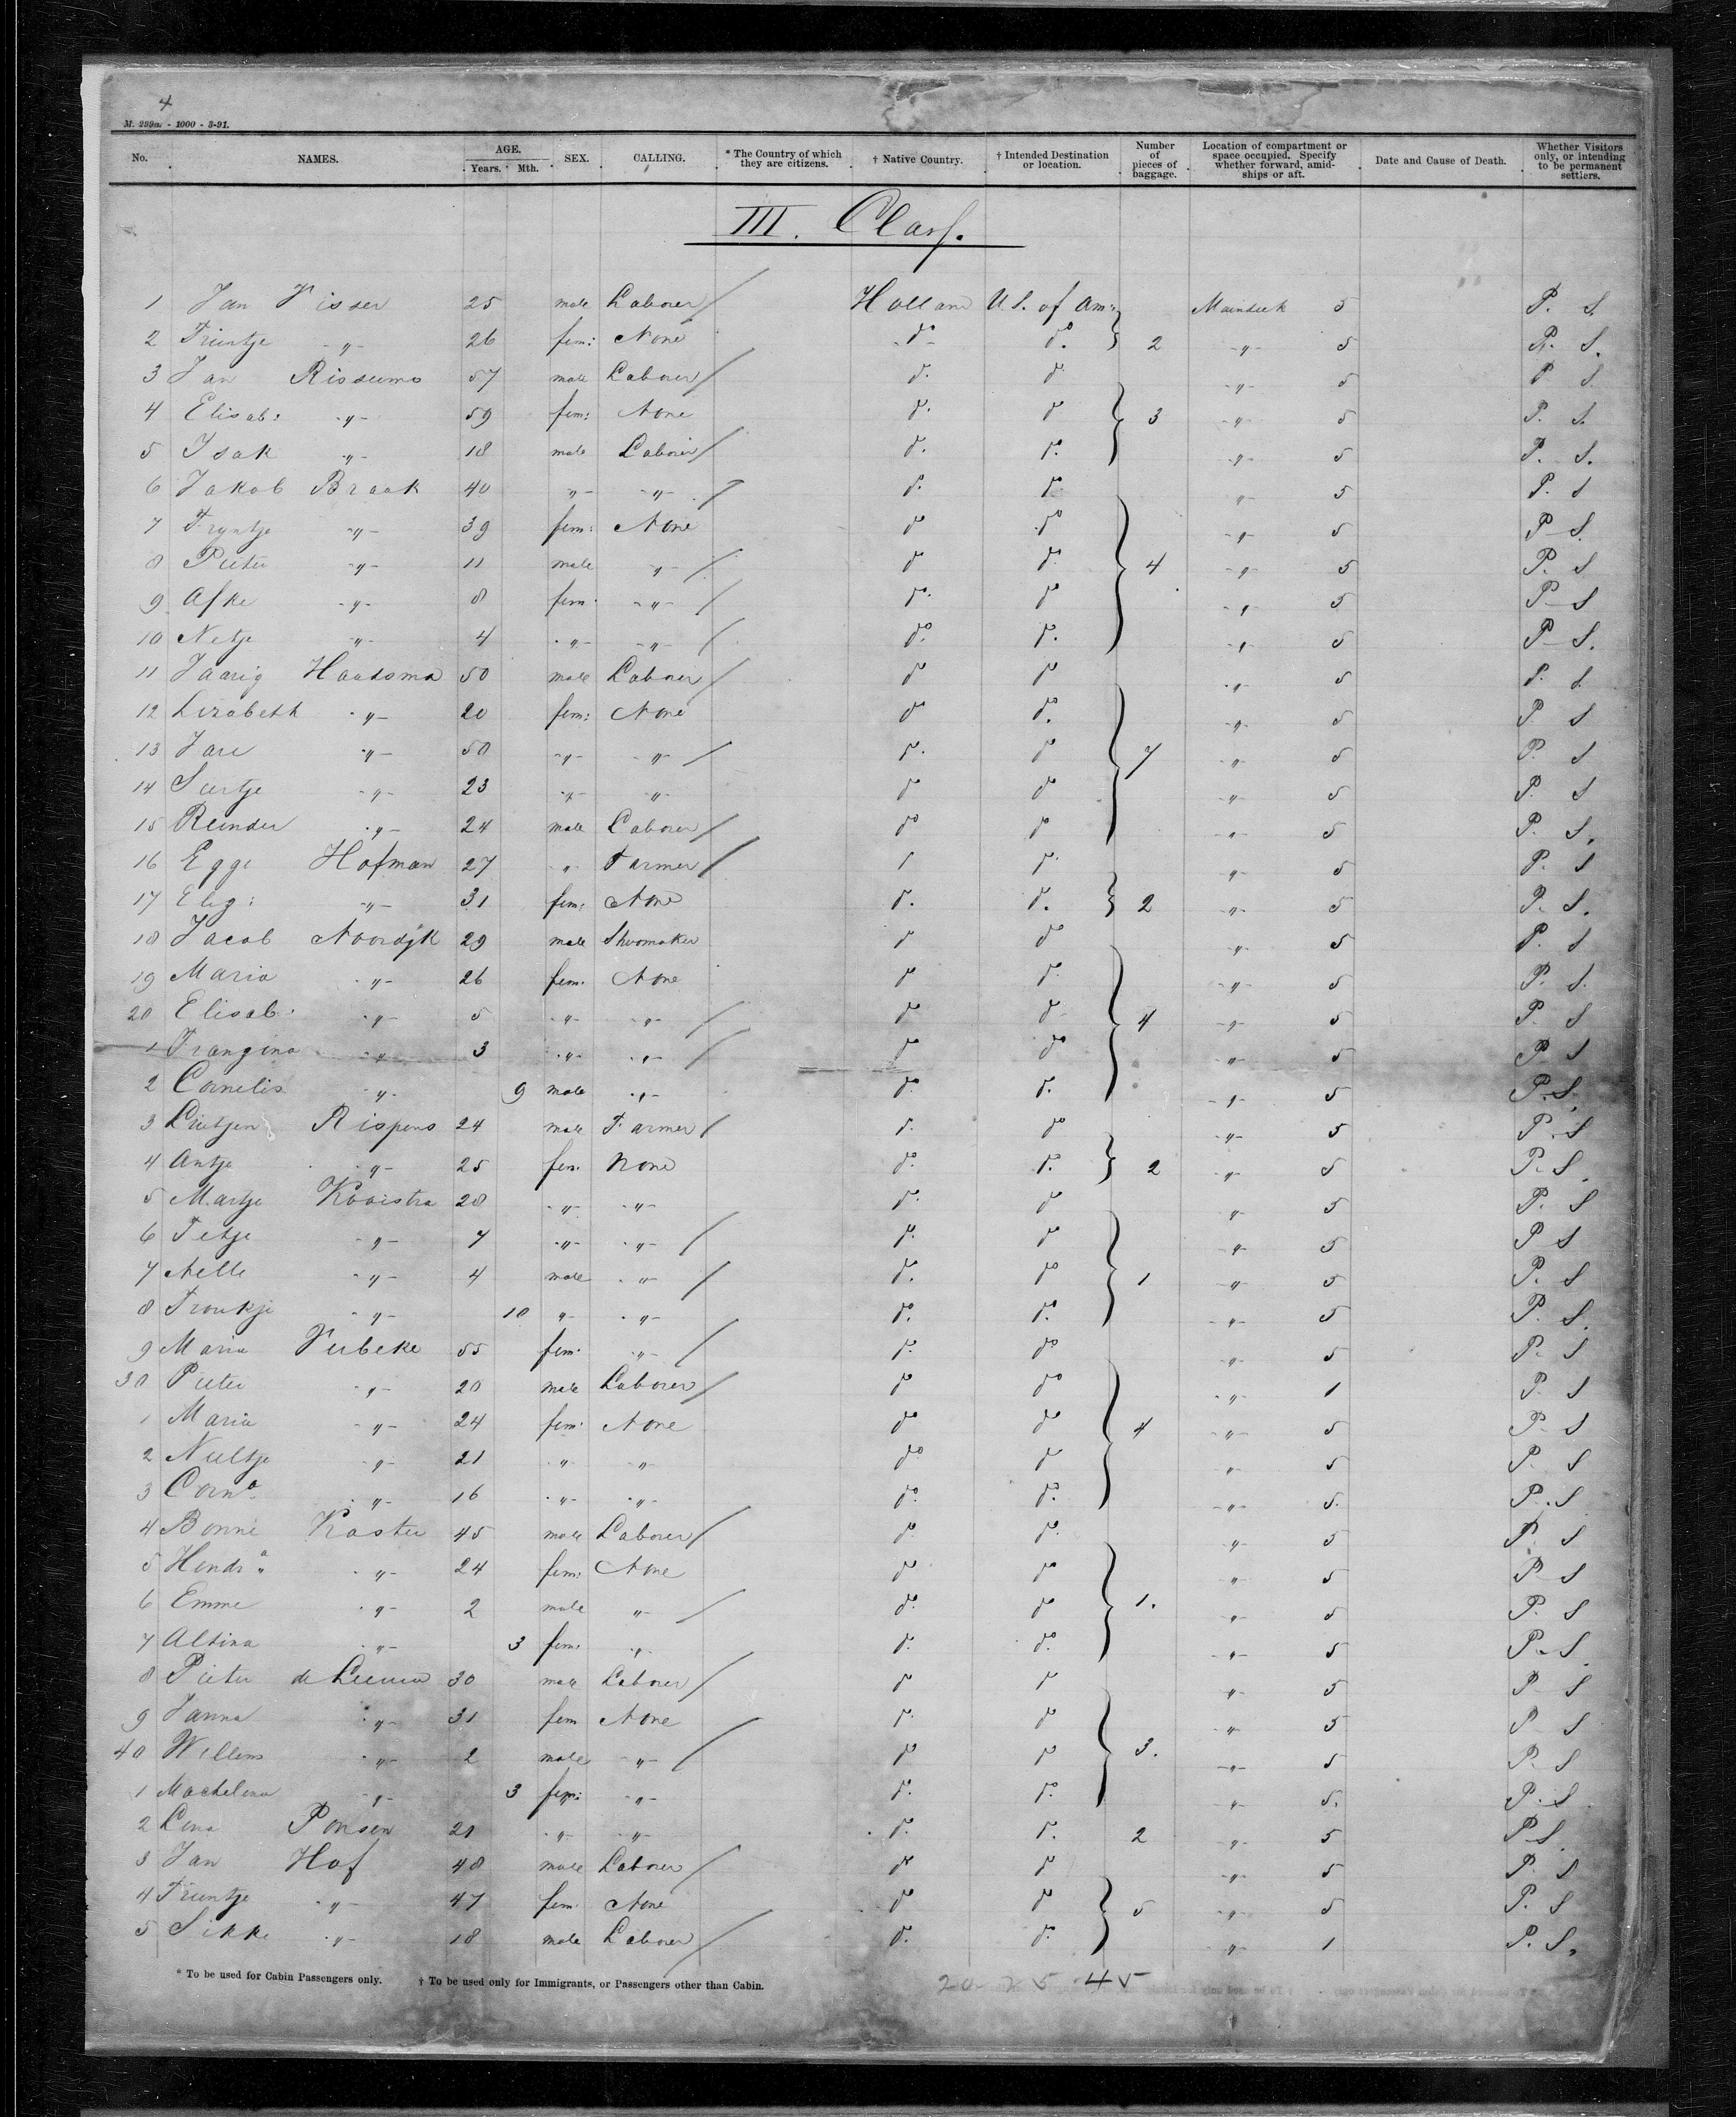 4
M. 299a. - 1000 - 3-91.
No. NAMES. AGE. Years. Mth. SEX. CALLING. * The Country of which they are citizens. † Native Country. † Intended Destination or location. Number of pieces of baggage. Location of compartment or space occupied. Specify whether forward, amidships or aft. Date and Cause of Death. Whether Visitors only, or intending to be permanent settlers.
III. Class.
1 Jan Visser 25 male Laborer / Holland U.S. of Am: Maindeck 5 P. S.
2 Trientje -"- 26 fem: None do do. } 2 -"- 5 P. S.
3 Jan Rissema 57 male Laborer / do. do -"- 5 P S.
4 Elisab: -"- 59 fem: None do. do 3 -"- 5 P. S.
5 Isak -"- 18 male Laborer / do. do. -"- 5 P. S.
6 Jakob Braak 40 -"- -"- / do. do. -"- 5 P. S
7 Tryntje -"- 39 fem: None do do -"- 5 P S.
8 Pieter -"- 11 male -"- / do do. 4 -"- 5 P. S
9 Afke -"- 8 fem. -"- / do. do -"- 5 P S
10 Netje -"- 4 -"- -"- / do. do. -"- 5 P S.
11 Jaarig Haadsma 50 male Laborer / do do -"- 5 P. S.
12 Lizabeth -"- 20 fem: None do do. -"- 5 P S
13 -"- 50 -"- -"- / do. do 7 -"- 5 P. S
14 -"- 23 -"- -"- do do -"- 5 P. S
15 Reinder -"- 24 male Laborer / do do -"- 5 P. S.
16 Egge Hofman 27 " Farmer / do. -"- 5 P. S
17 -"- 31 fem: None do. do. } 2 -"- 5 P. S.
18 Jacob Noordyk 29 male Shoomaker do do -"- 5 P. S
19 Maria -"- 26 fem. None do do -"- 5 P. S.
20 Elisab. -"- 5 -"- -"- / do do 4 -"- 5 P. S
1 Frangina -"- 3 -"- -"- / do do -"- 5 P S
2 Cornelis -"- 9 male -"- do. do. -"- 5 P. S.
3 Lietjen Rispens 24 male Farmer / do. do -"- 5 P. S
4 Antje -"- 25 fem. None do. do. } 2 -"- 5 P. S.
5 Martje Kooistra 28 -"- -"- do. do -"- 5 P. S
6 Tetje -"- 7 -"- -"- / do. do -"- 5 P S
7 Nelle -"- 4 male -"- / do. do 1 -"- 5 P. S
8 Froukje -"- 10 "- -"- do. do. -"- 5 P. S.
9 Maria Verbeke 55 fem. -"- / do. do -"- 5 P. S
30 Pieter -"- 20 male Laborer / do do -"- 1 P. S
1 Maria -"- 24 fem. None do do 4 -"- 5 P. S
2 Neeltje -"- 21 -"- -"- do do -"- 5 P. S
3 Corna. -"- 16 -"- -"- do. do. -"- 5. P. S
4 Bonne Koster 45 male Laborer / do. do. -"- 5 P. S
5 Hendra. -"- 24 fem: None do do -"- 5 P S
6 Emme -"- 2 male "- / do. do 1. -"- 5 P. S
7 Altina -"- 3 fem. -"- do. do. -"- 5 P. S.
8 Pieter de Leeuw 30 male Laborer / do do "- 5 P S
9 Janna -"- 31 fem None do. do "- 5 P S
40 Willem -"- 2 male -"- / do do 3. -"- 5 P. S
1 Machelina -"- 3 fem: -"- do. do. -"- 5. P. S.
2 Lena Ponsen 21 -"- -"- do. do. 2 -"- 5 P S.
3 Jan Hof 48 male Laborer / do do -"- 5 P. S
4 Trientje -"- 47 fem. None do do 5 -"- 5 P. S
5 Sikke -"- 18 male Laborer / do. do. -"- 1 P. S.
* To be used for Cabin Passengers only. † To be used only for Immigrants, or Passengers other than Cabin.
20 25 45